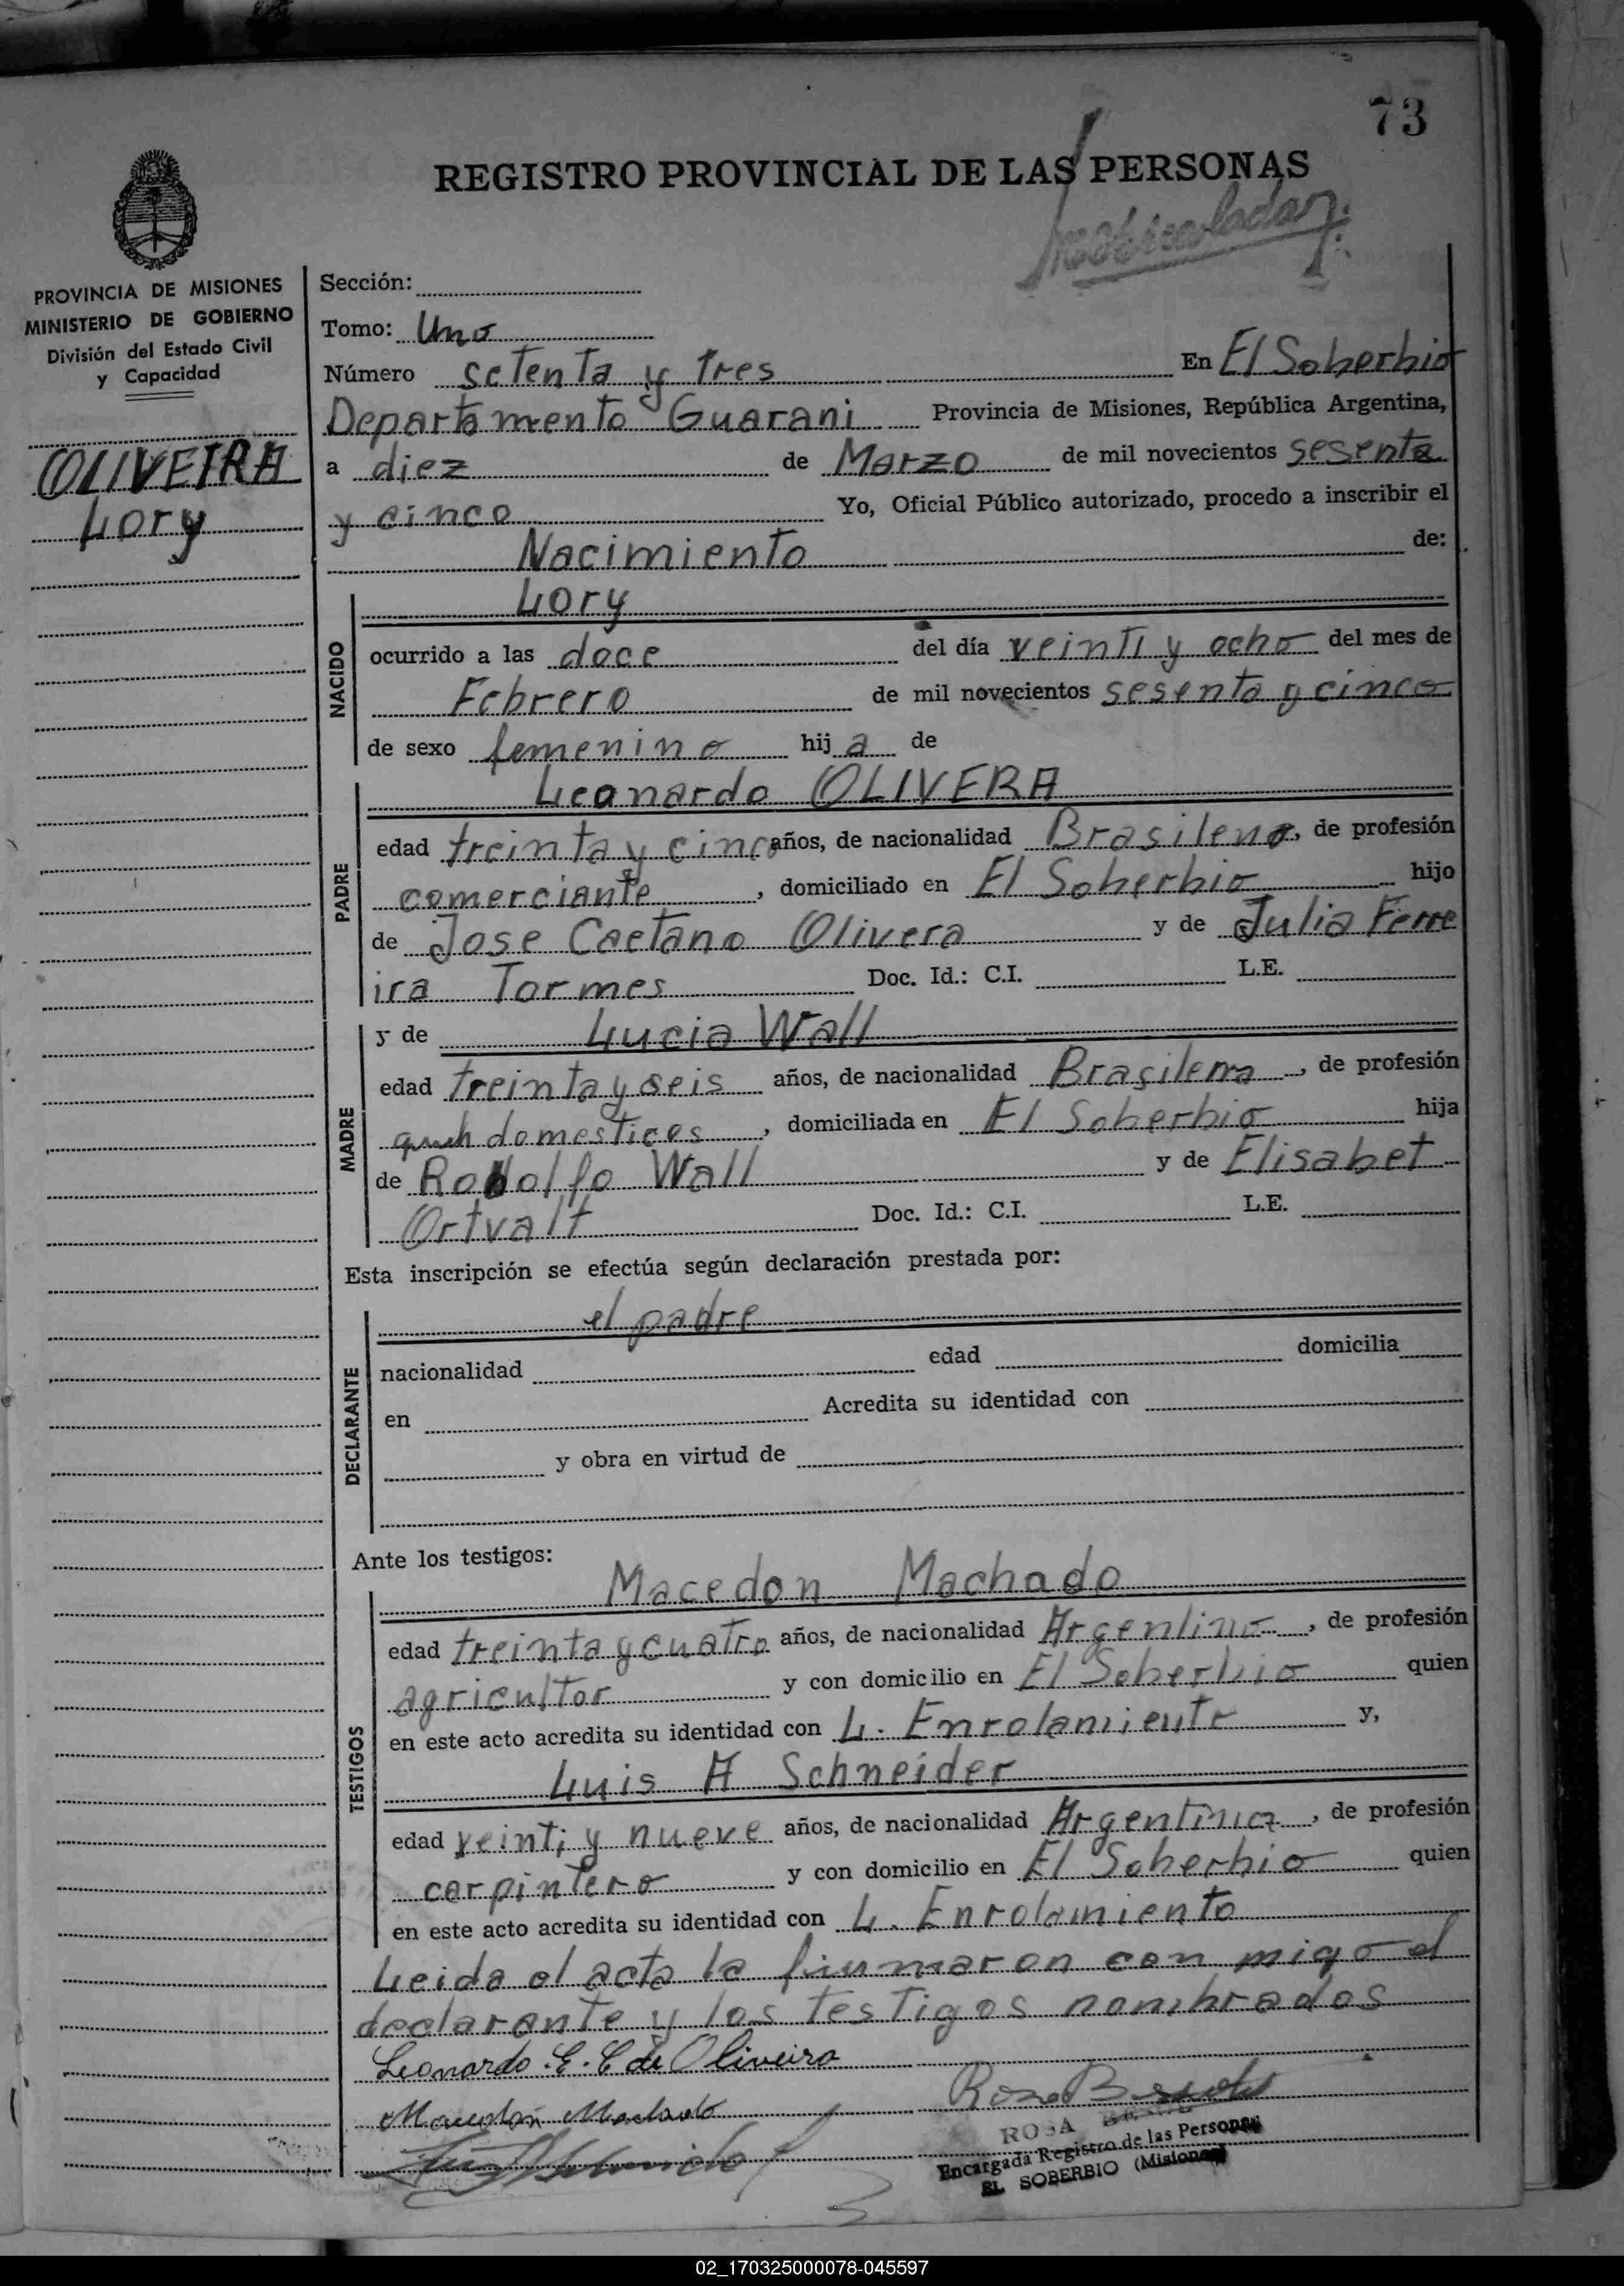 73
REGISTRO PROVINCIAL DE LAS PERSONAS
PROVINCIA DE MISIONES
MINISTERIO DE GOBIERNO
División del Estado Civil
y Capacidad
OLIVEIRA
Lory
Sección:
Tomo: Uno
Número setenta y tres En El Soberbio
Departamento Guarani Provincia de Misiones, República Argentina,
a diez de Marzo de mil novecientos sesenta
y cinco Yo, Oficial Público autorizado, procedo a inscribir el
Nacimiento de:
NACIDO
Lory
ocurrido a las doce del día veinti y ocho del mes de
Febrero de mil novecientos sesenta y cinco
de sexo femenino hija de
PADRE
Leonardo OLIVERA
edad treinta y cinco años, de nacionalidad Brasileno, de profesión
comerciante, domiciliado en El Soberbio hijo
de Jose Caetano Olivera y de Julia Ferre
ira Tormes Doc. Id.: C.I. L.E.
MADRE
y de Lucia Wall
edad treinta y seis años, de nacionalidad Brasilena, de profesión
domesticos, domiciliada en El Soberbio hija
de Rodolfo Wall y de Elisabet
Ortvalt Doc. Id.: C.I. L.E.
Esta inscripción se efectúa según declaración prestada por:
DECLARANTE
el padre
nacionalidad edad domicilia
en Acredita su identidad con
y obra en virtud de
Ante los testigos:
TESTIGOS
Macedon Machado
edad treinta y cuatro años, de nacionalidad Argentino, de profesión
agricultor y con domicilio en El Soberbio quien
en este acto acredita su identidad con L. Enrolamiento y,
Luis A Schneider
edad veinti y nueve años, de nacionalidad Argentina, de profesión
carpintero y con domicilio en El Soberbio quien
en este acto acredita su identidad con L. Enrolamiento
Leida el acta la firmaron con migo el
declarante y los testigos nombrados
Leonardo. E. C de Oliveira
Macedon Machado
Rosa
ROSA
Encargada Registro de las Personas
EL SOBERBIO (Misiones)
02_170325000078-045597